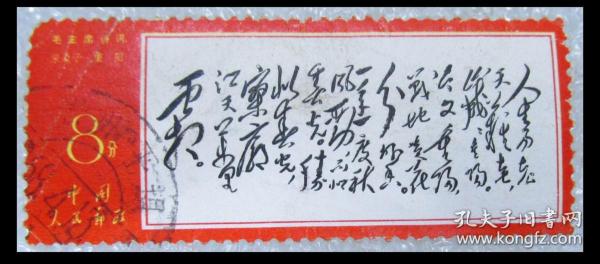 毛主席诗词
采桑子·重阳
8分
中国
人民邮政
人生易老
天难老,
岁岁重阳。
今又重阳,
战地黄花
分外香。
一年一度秋
风劲,不似
春光。胜
似春光,
寥廓
江天万里
霜。
孔夫子旧书网
www.kongfz.com